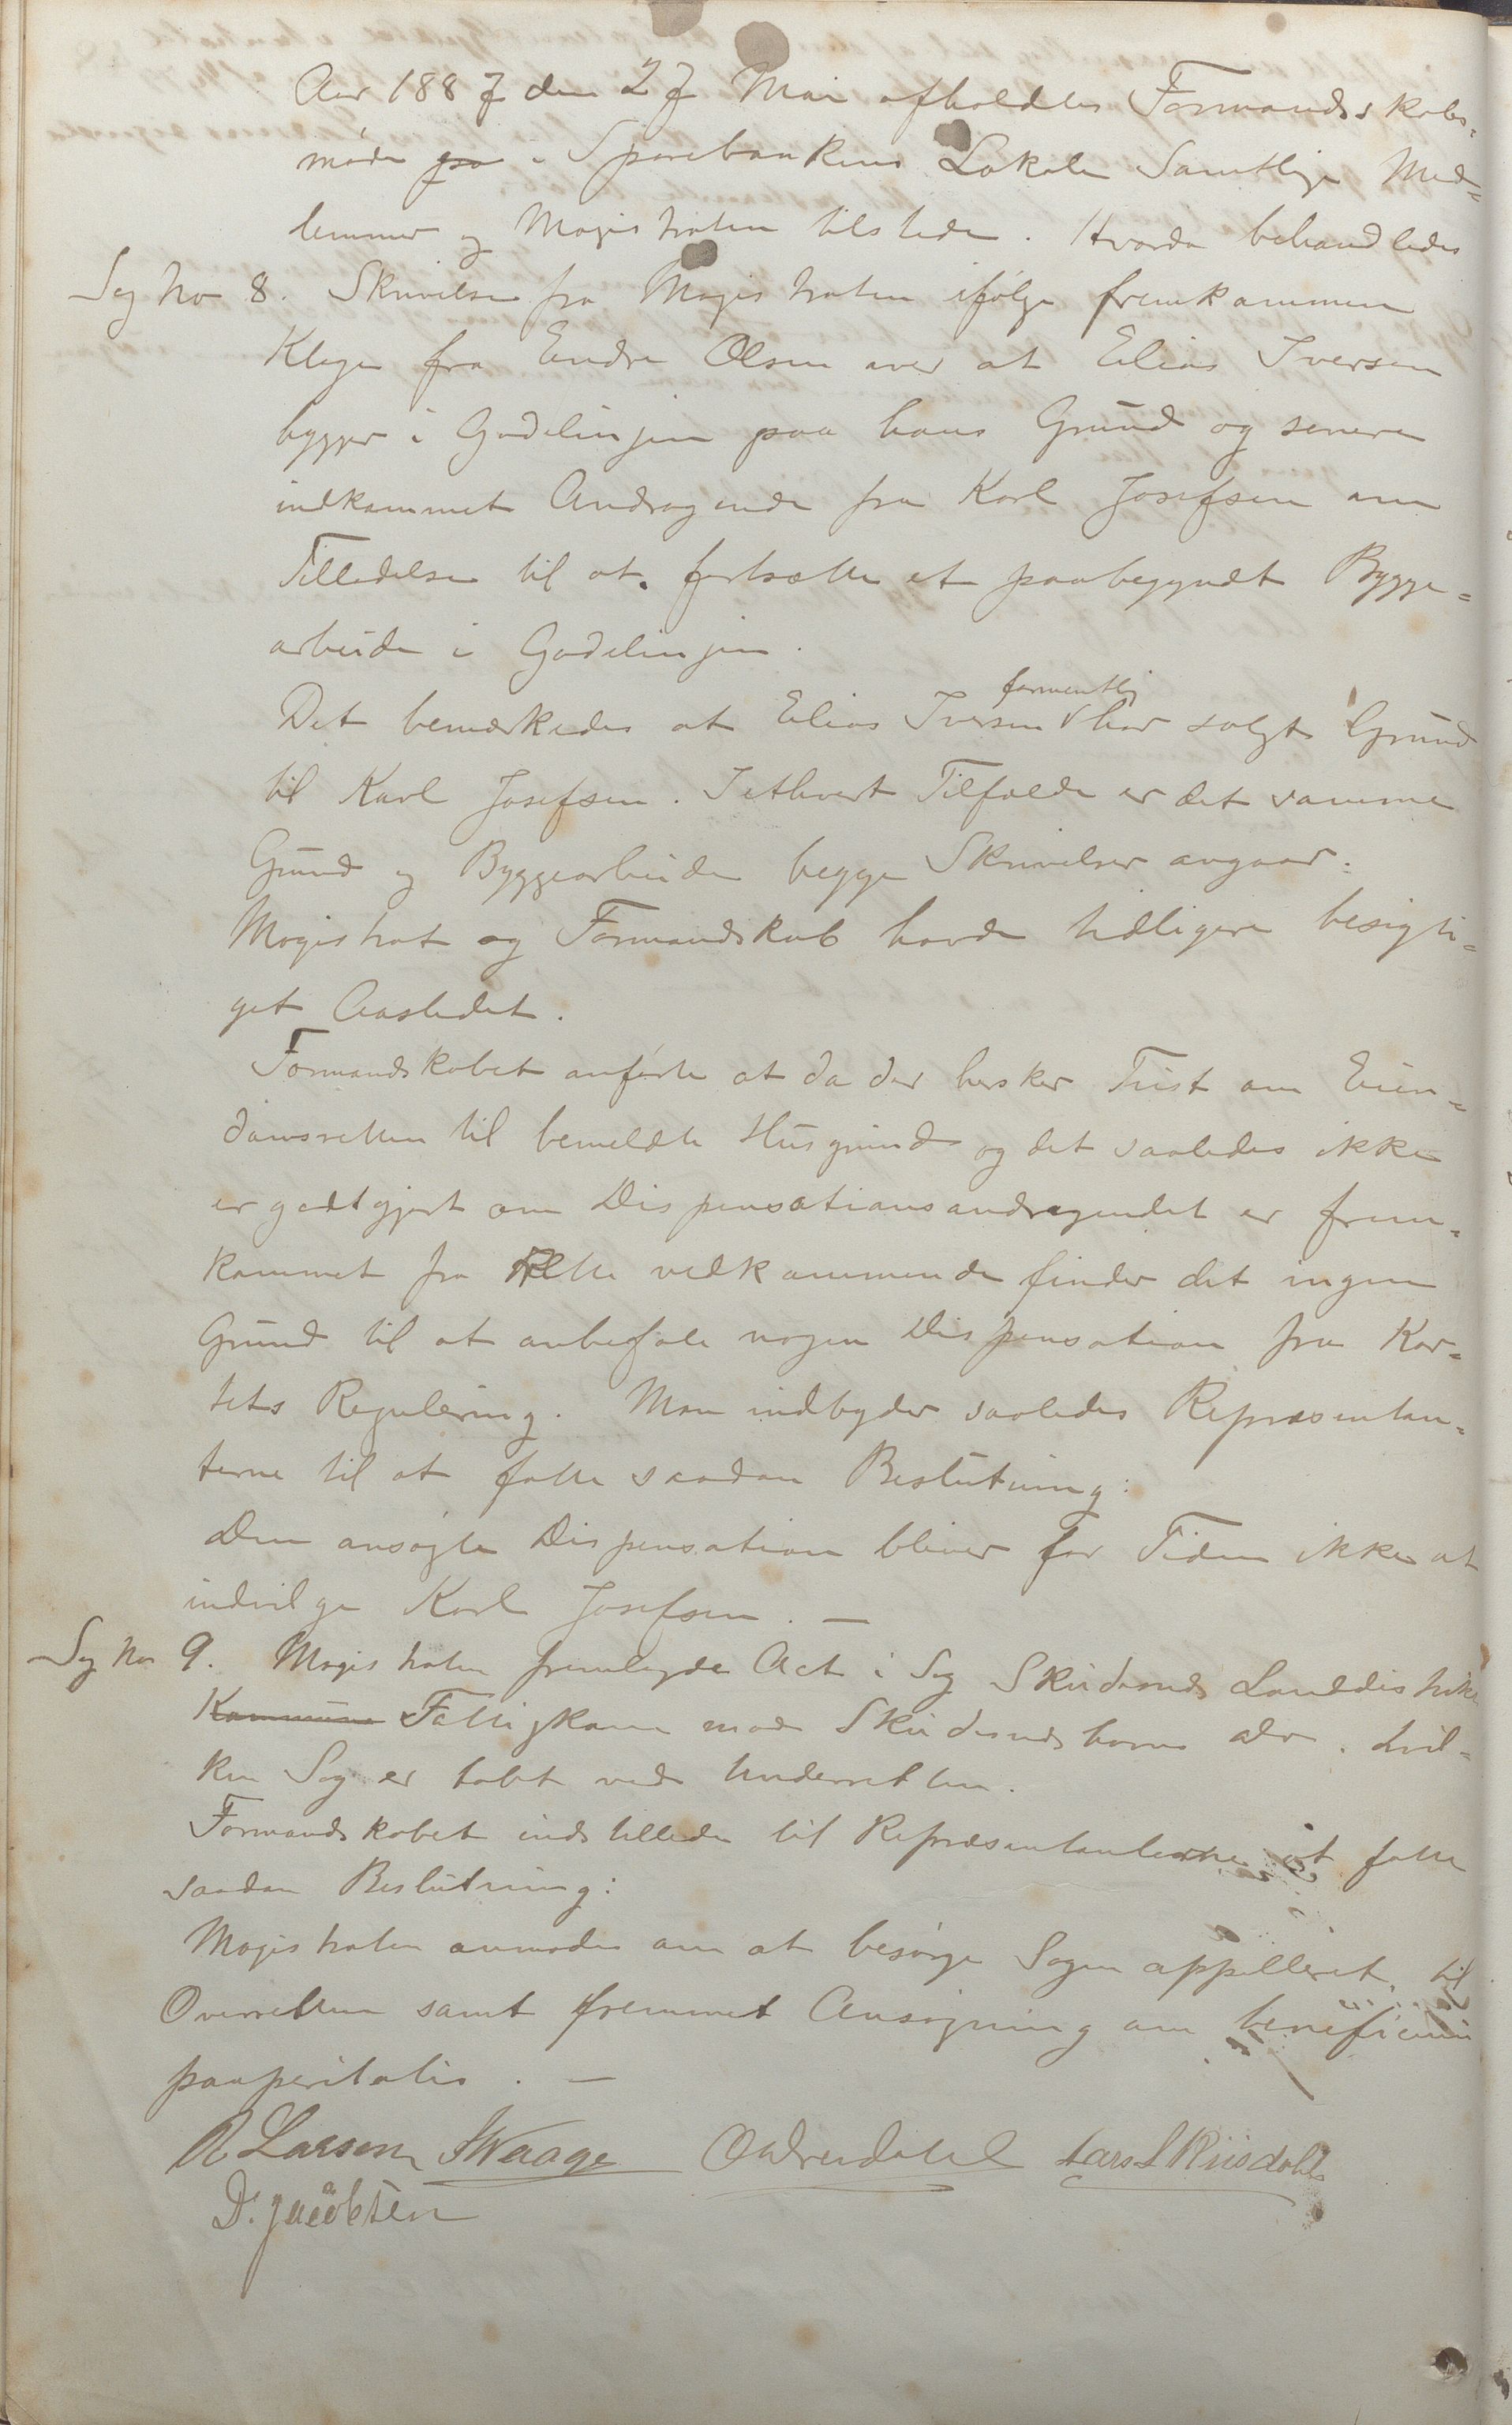 Aar 1887 den 27 Mai afholdtes Formandsskabs-
møde paa i Sparebankens Lokale Samtlige Med=
lemmer og Magistraten tilstede. Hvorda behandledes
Sag No 8. Skrivelse fra Magistraten ifølge fremkommen
Klage fra Endre Olsen over at Elias Iversen
bygger i Gadelinjen paa hans Grund og senere
indkommet Andragende fra Karl Josefsen om
Tilladelse til at fortsætte et paabegyndt Bygge=
arbeide i Gadelinjen.
Det bemærkedes at Elias Iversen formentlig har solgt Grund
til Karl Josefsen. I ethvert Tilfælde er det samme
Grund og Byggearbeide begge Skrivelser angaar.
Magistrat og Formandskab havde tidligere besigti=
get Aastedet.
Formandskabet anførte at da der hersker Tvist om Eien=
domsretten til bemeldte Husgrund og det saaledes ikke
er godtgjort om Dispensationsandragendet er frem=
kommet fra Rette vedkommende finder det ingen
Grund til at anbefale nogen Dispensation fra Kar=
tets Regulering. Man indbyder saaledes Repræsentan=
terne til at fatte saadan Beslutning:
Den ansøgte Dispensation bliver for Tiden ikke at
indvilge Karl Josefsen. —
Sag No 9. Magistraten fremlagde Act i Sag Skudesnes Landdistrikts
Kommune Fattigkom mod Skudesneshavns do. hvil=
ken Sag er tabt ved Underretten.
Formandskabet indstillede til Repræsentanterne at fatte
saadan Beslutning:
Magistraten anmodes om at besørge Sagen appelleret til
Overretten samt fremmet Ansøgning om beneficium
pauperitatis. —
R Larsen J Waage O Adreidahl Lars L Riisdahl
D. Jacobsen